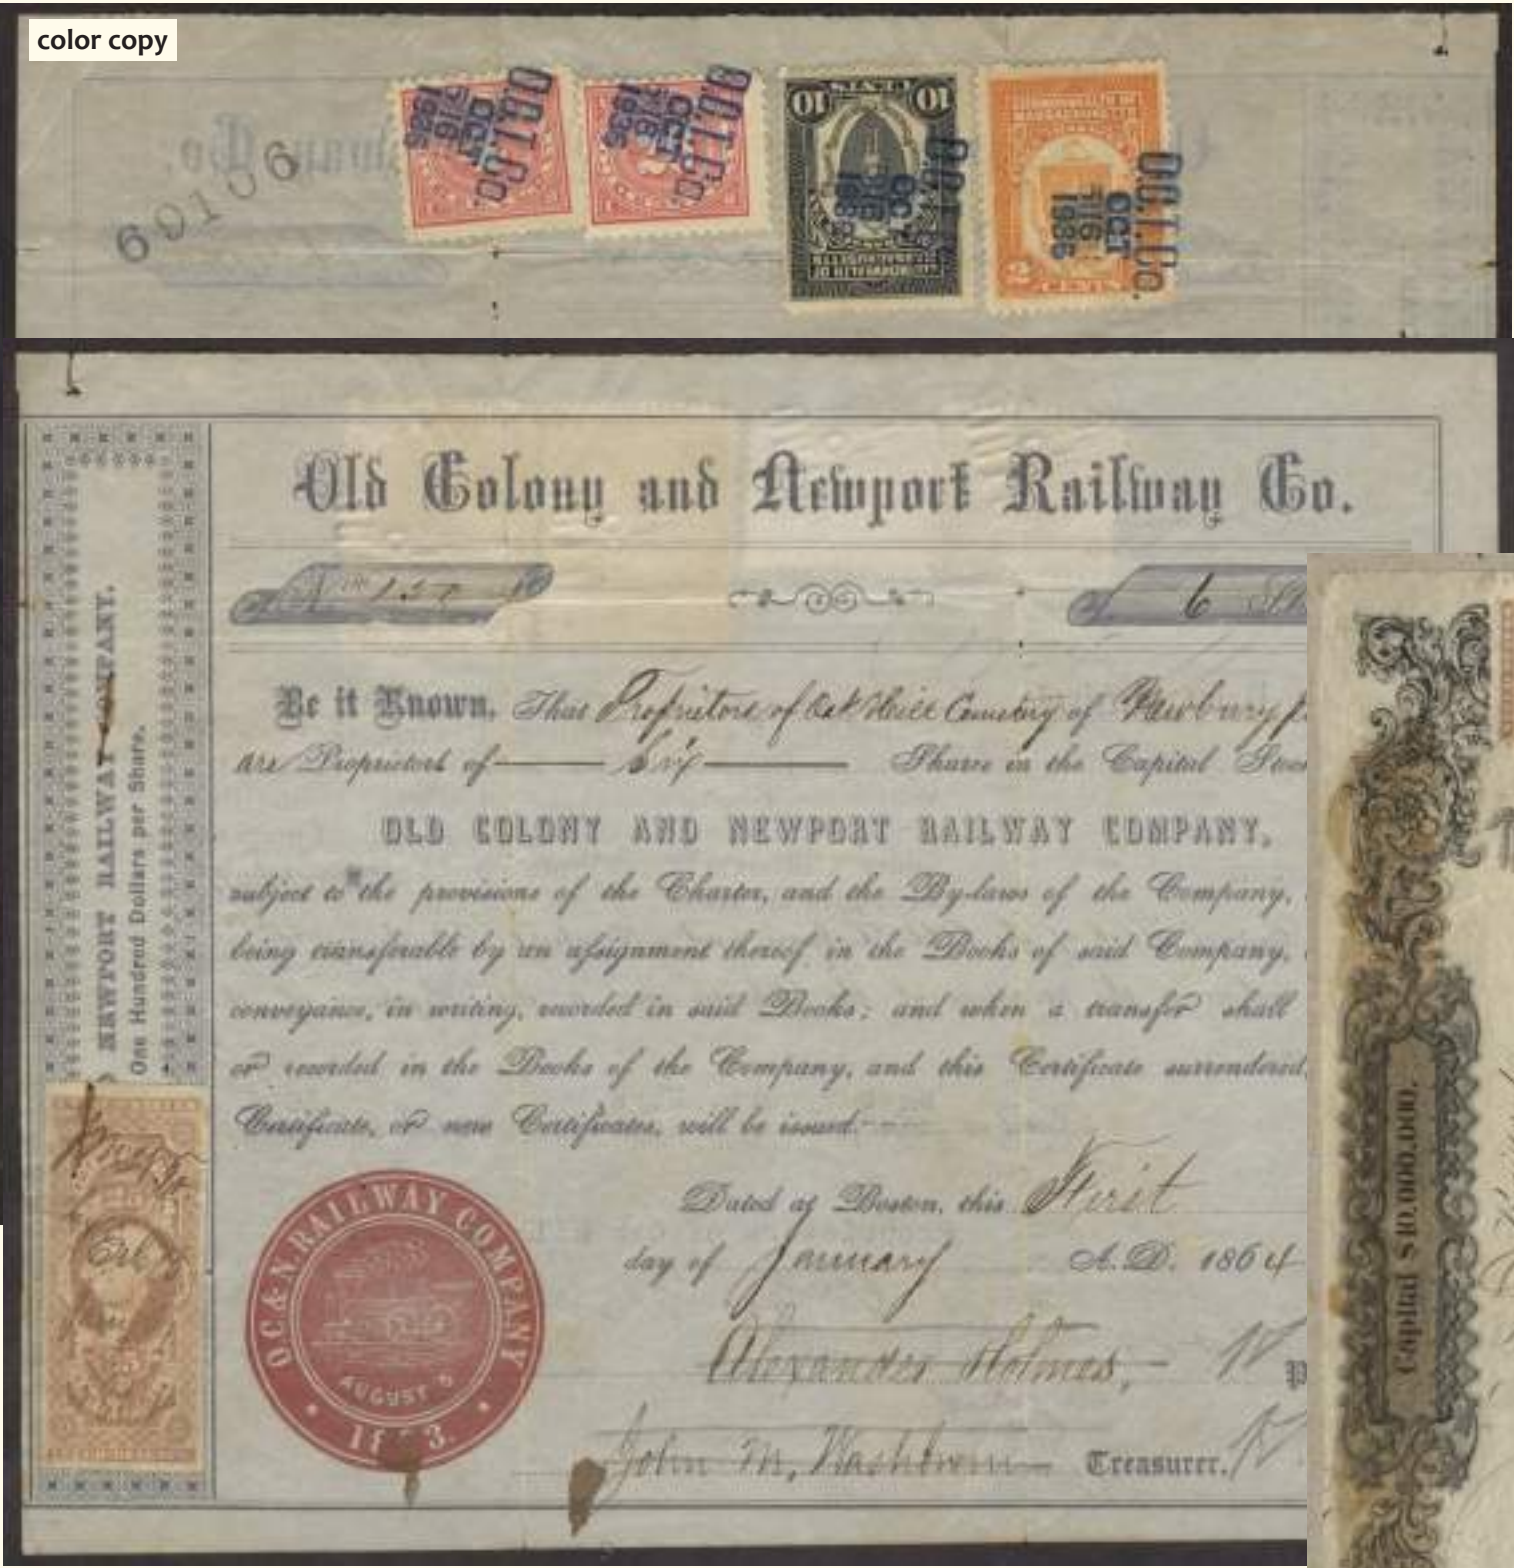 color copy
69106
O.C.T.Co.
OCT
O.C.T.Co.
OCT
10 CENTS 10
COMMONWEALTH OF
MASSACHUSETTS
OCT
COMMONWEALTH OF
MASSACHUSETTS
O.C.T.Co.
OCT
2 CENTS
Old Colony and Newport Railway Co.
6
NEWPORT RAILWAY COMPANY.
One Hundred Dollars per Share.
Be it Known, That Proprietors of Oak Hill Cemetery of Newbury
are Proprietors of Six Shares in the Capital Stoc
OLD COLONY AND NEWPORT RAILWAY COMPANY,
subject to the provisions of the Charter, and the By-laws of the Company,
being transferable by an assignment thereof in the Books of said Company,
conveyance, in writing, recorded in said Books; and when a transfer shall
or recorded in the Books of the Company, and this Certificate surrendered,
Certificate, or new Certificates, will be issued.
Dated at Boston, this First
day of January A.D. 1864
Alexander Holmes, P
John M. Washburn Treasurer.
O.C. & N. RAILWAY COMPANY
AUGUST 5
Capital $10,000,000.